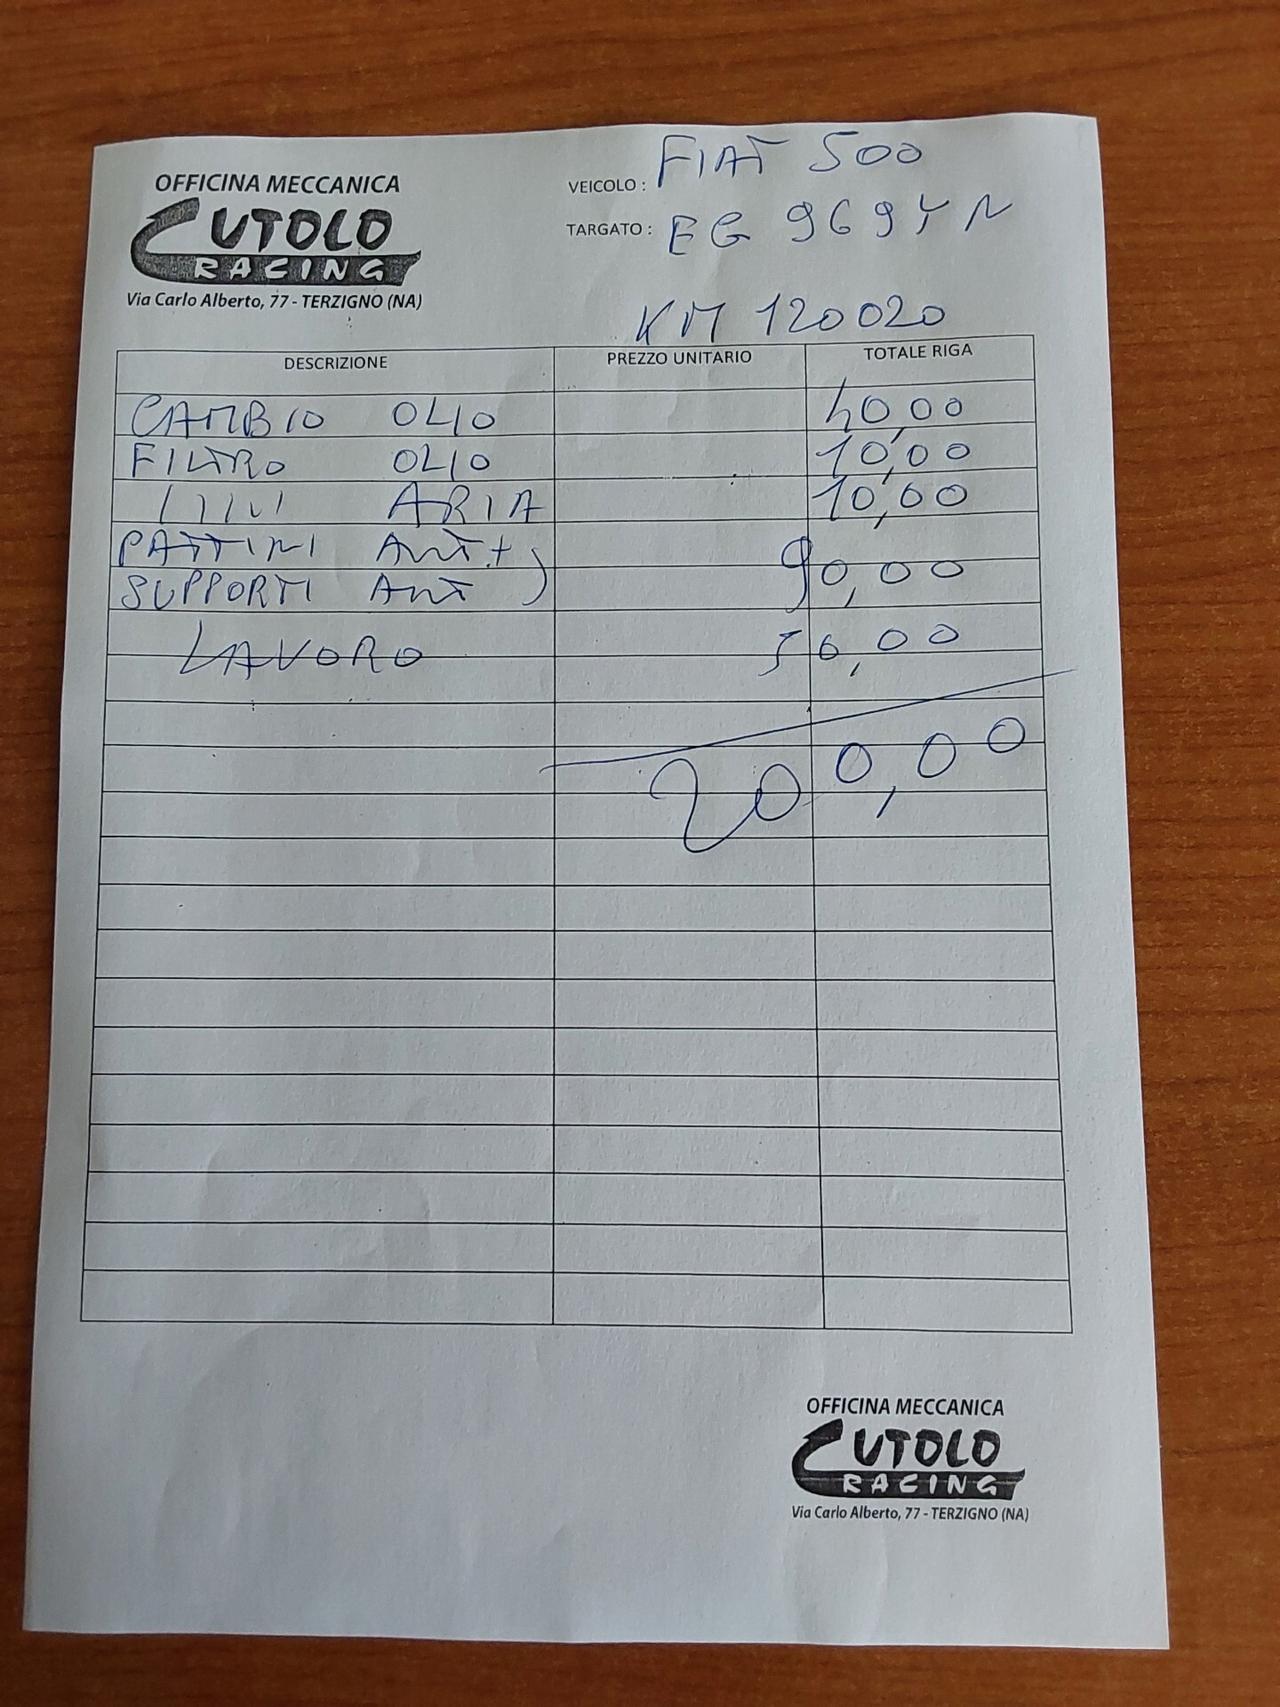 OFFICINA MECCANICA
CUTOLO
RACING
Via Carlo Alberto, 77 - TERZIGNO (NA)
VEICOLO : FIAT 500
TARGATO : EG 969YN
KM 120020
DESCRIZIONE PREZZO UNITARIO TOTALE RIGA
CAMBIO OLIO 40,00
FILTRO OLIO 10,00
ARIA 10,00
PATTINI ANT +
SUPPORTI ANT 90,00
LAVORO 50,00
200,00
OFFICINA MECCANICA
CUTOLO
RACING
Via Carlo Alberto, 77 - TERZIGNO (NA)